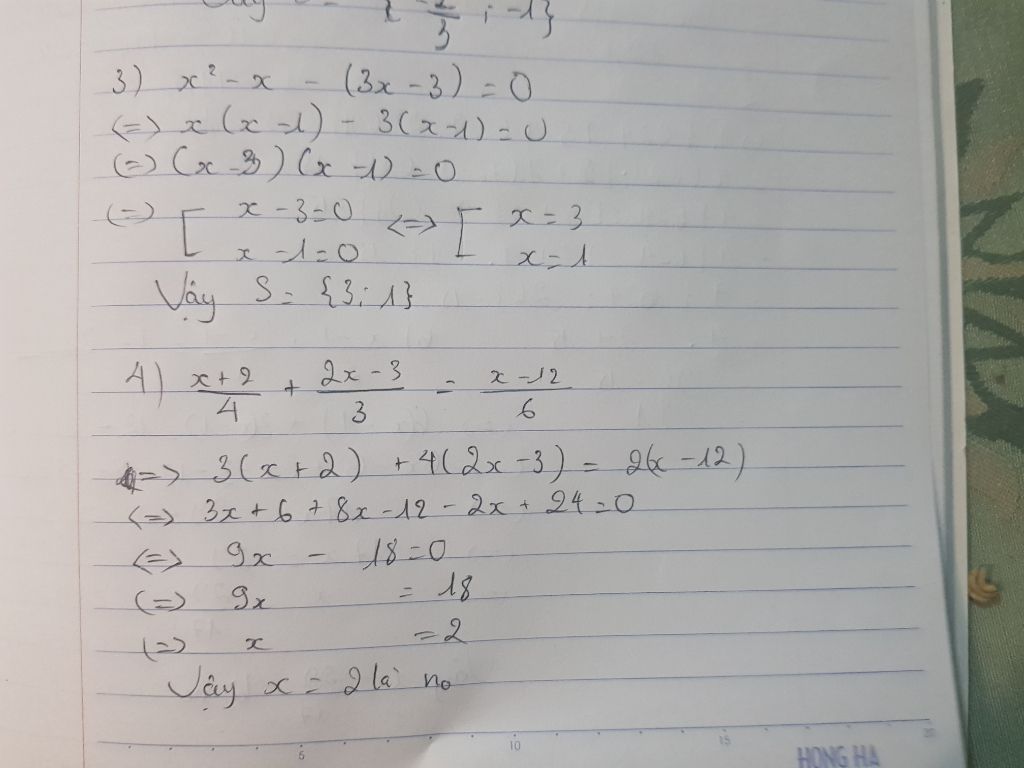 Vậy S = { -2/3 ; -1}
3) x² - x - (3x - 3) = 0
<=> x(x - 1) - 3(x - 1) = 0
<=> (x - 3)(x - 1) = 0
<=> [ x - 3 = 0 <=> [ x = 3
x - 1 = 0 x = 1
Vậy S = {3; 1}
4) (x + 2)/4 + (2x - 3)/3 = (x - 12)/6
=> 3(x + 2) + 4(2x - 3) = 2(x - 12)
<=> 3x + 6 + 8x - 12 - 2x + 24 = 0
<=> 9x - 18 = 0
<=> 9x = 18
<=> x = 2
Vậy x = 2 là no
5 10 15 20
HONG HA